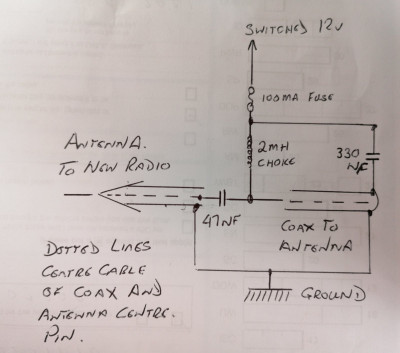 SWITCHED 12V
100MA FUSE
ANTENNA.
TO NEW RADIO
2MH
CHOKE
330
NF
47NF
COAX TO
ANTENNA
DOTTED LINES
CENTRE CABLE
OF COAX AND
ANTENNA CENTRE.
PIN.
GROUND